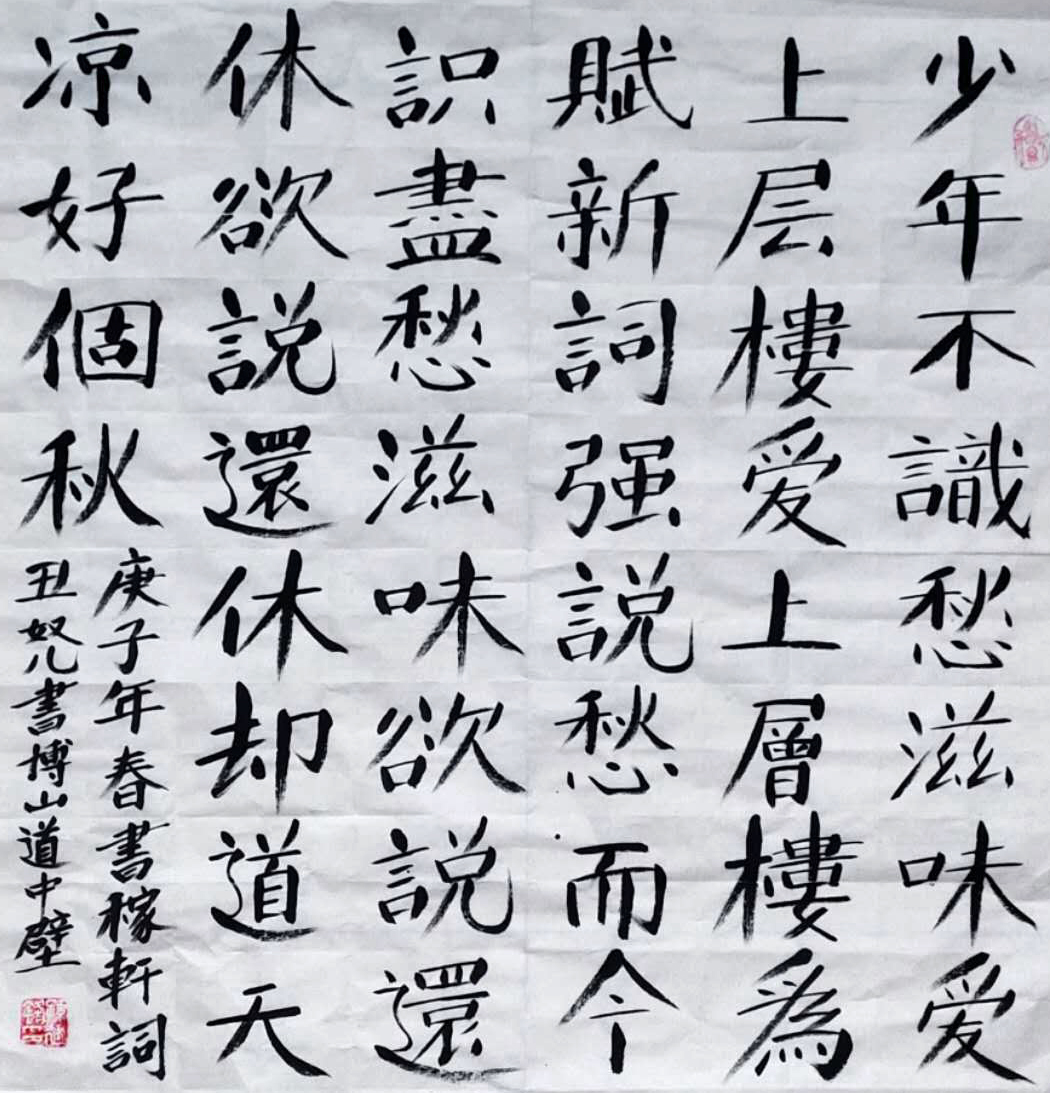 少年不識愁滋味爱
上层樓爱上層樓為
賦新詞强説愁而今
识盡愁滋味欲説還
休欲説還休却道天
凉好個秋
庚子年春書稼軒詞
丑奴儿書博山道中壁